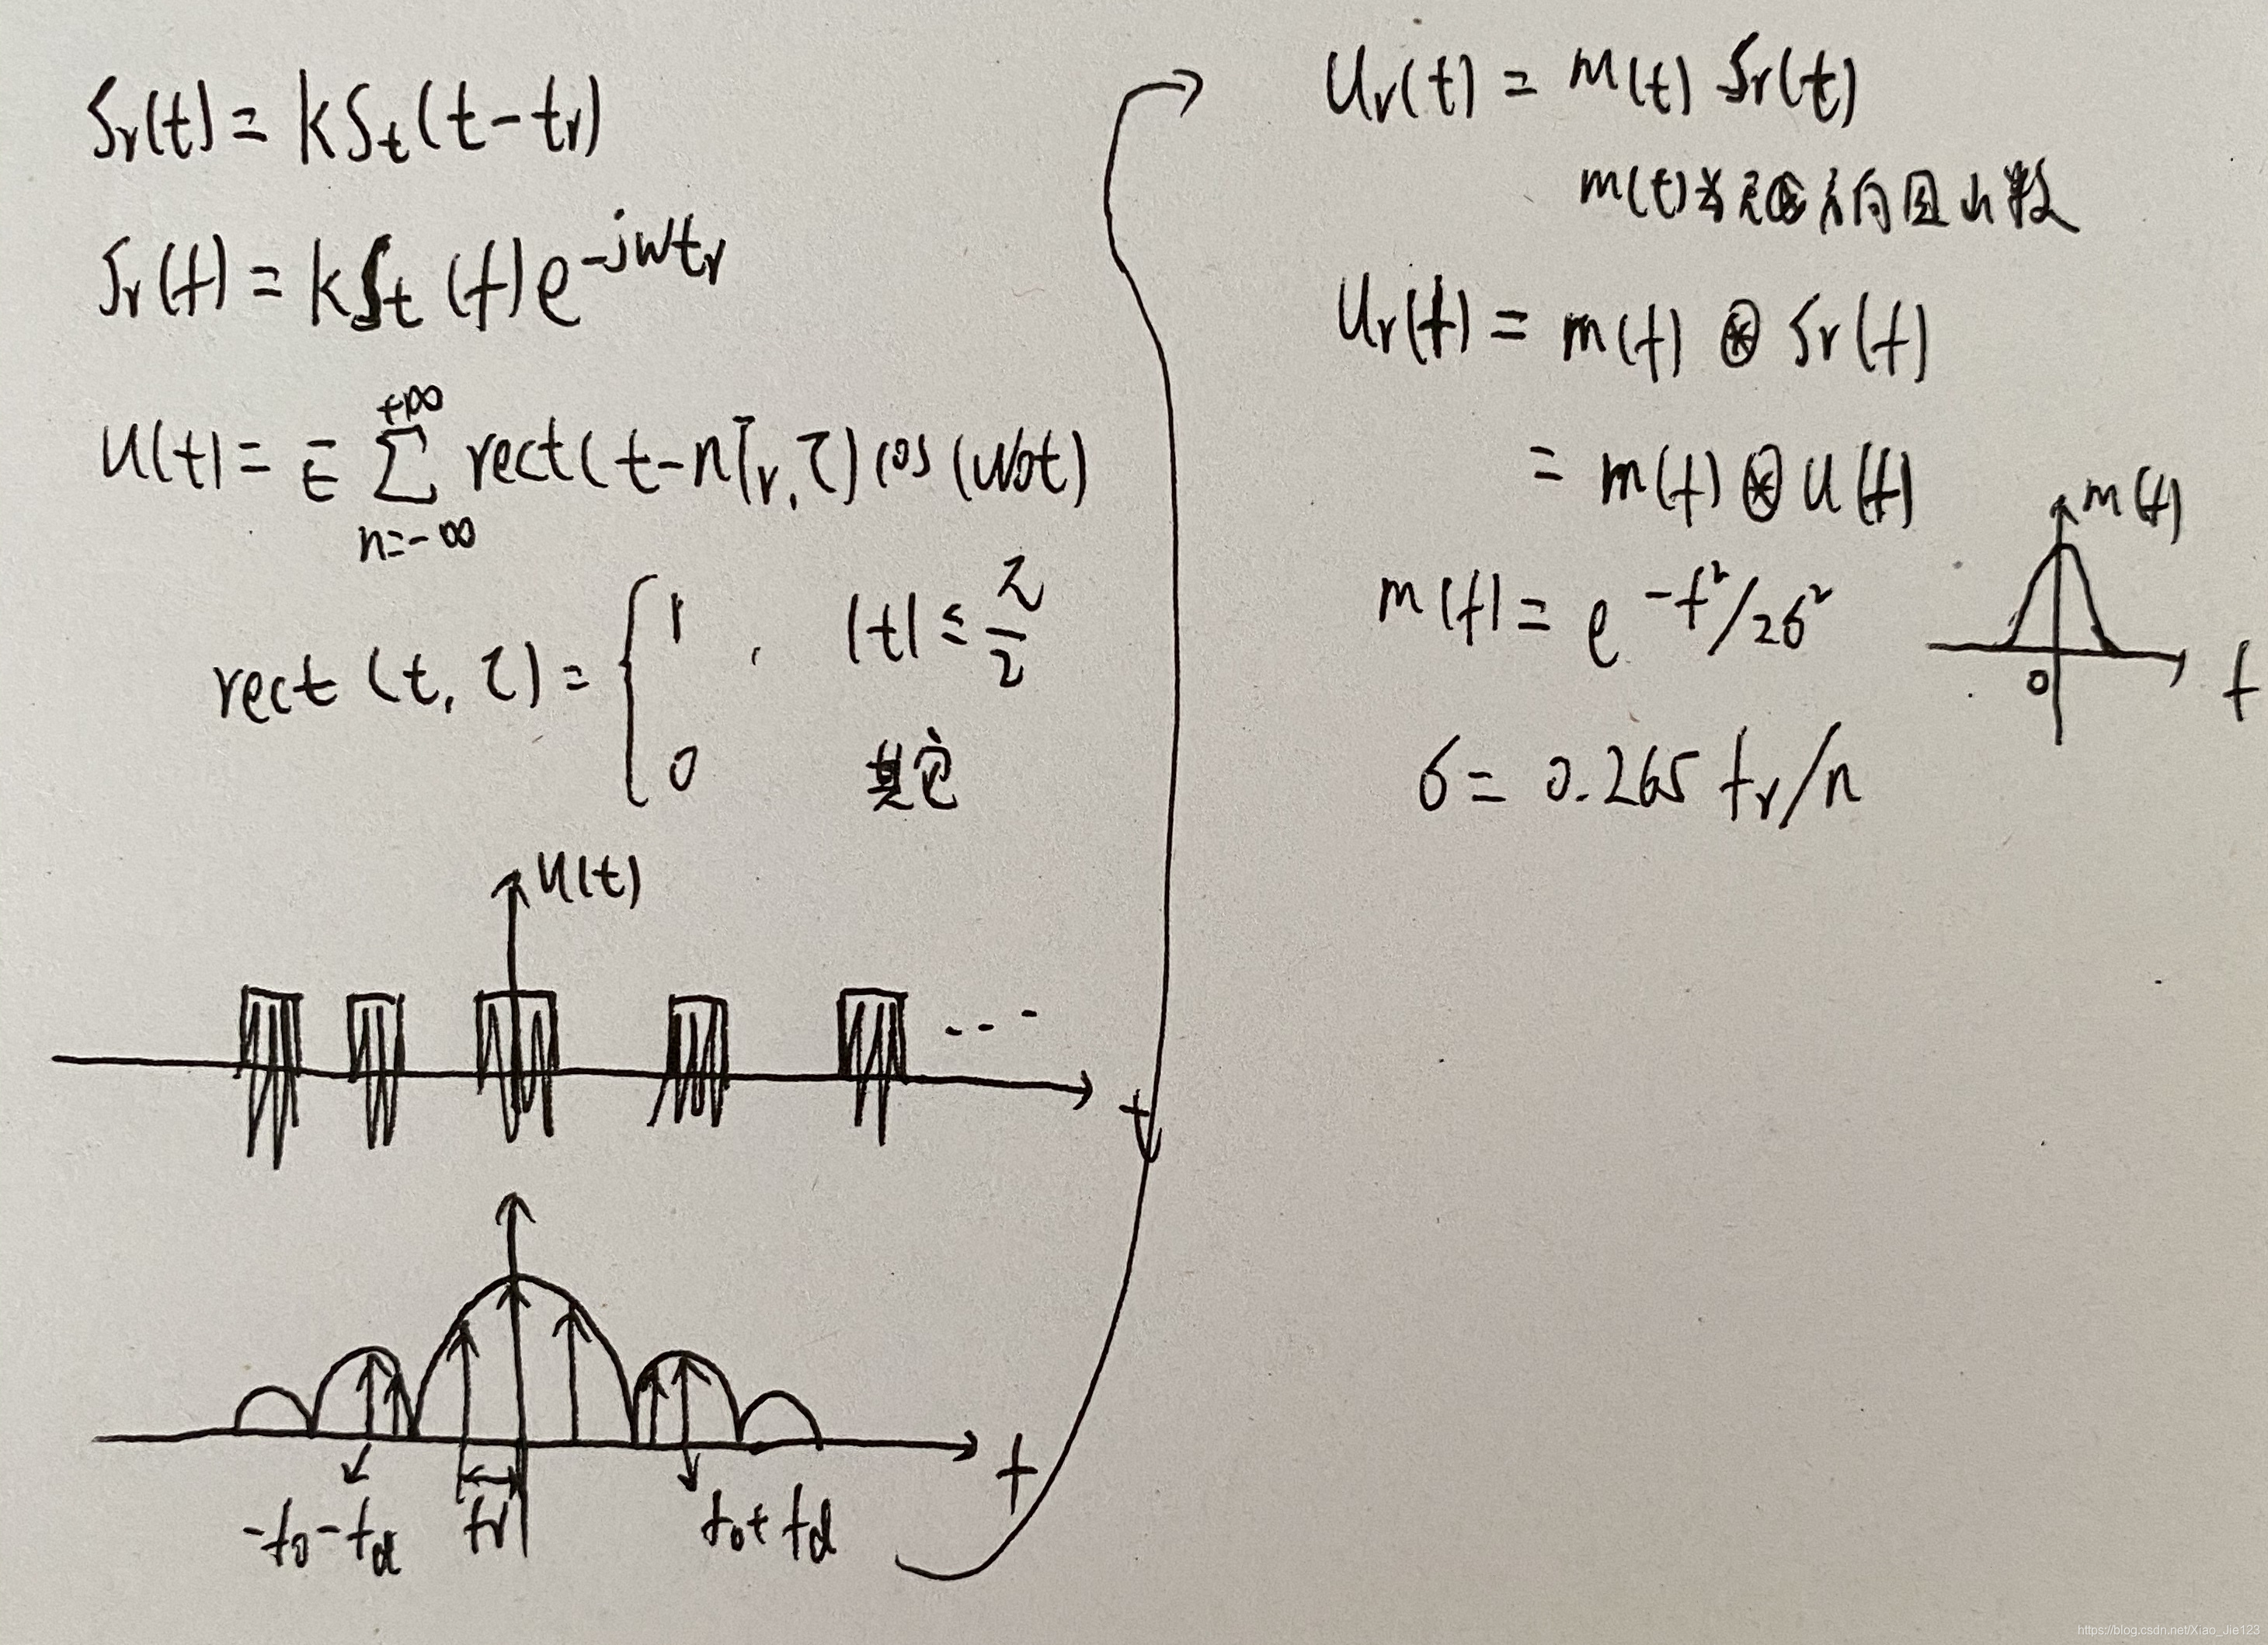 Sr(t) = kSt(t-tr)
Sr(f) = kSt(f)e^{-jwtr}
u(t) = E \sum_{n=-∞}^{+∞} rect(t-nTr, τ) cos(w0t)
rect(t, τ) = { 1, |t| ≤ τ/2
0 其它
u(t)
t
f
-f0-fd fr f0+fd
Ur(t) = m(t) Sr(t)
m(t)为 方向图 数
Ur(f) = m(f) ⊛ Sr(f)
= m(f) ⊛ U(f)
m(f)
m(f) = e^{-f²/2σ²}
0 f
σ = 0.265 fr/n
https://blog.csdn.net/Xiao_Jie123